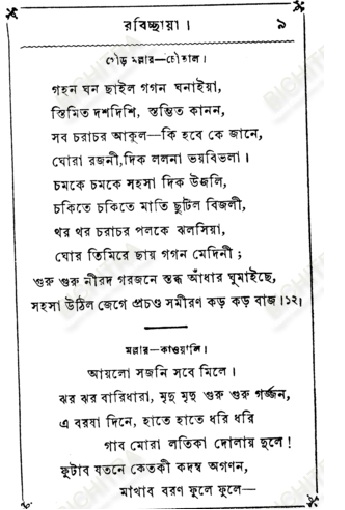 রবিচ্ছায়া। ৯
গৌড় মল্লার—চৌতাল।
গহন ঘন ছাইল গগন ঘনাইয়া,
স্তিমিত দশদিশি, স্তম্ভিত কানন,
সব চরাচর আকুল—কি হবে কে জানে,
ঘোরা রজনী, দিক ললনা ভয়বিভলা।
চমকে চমকে সহসা দিক উজলি,
চকিতে চকিতে মাতি ছুটিল বিজলী,
থর থর চরাচর পলকে ঝলসিয়া,
ঘোর তিমিরে ছায় গগন মেদিনী;
গুরু গুরু নীরদ গরজনে স্তব্ধ আঁধার ঘুমাইছে,
সহসা উঠিল জেগে প্রচণ্ড সমীরণ কড় কড় বাজ।১২।
মল্লার—কাওয়ালি।
আয়লো সজনি সবে মিলে।
ঝর ঝর বারিধারা, মৃদু মৃদু গুরু গুরু গর্জ্জন,
এ বরষা দিনে, হাতে হাতে ধরি ধরি
গাব মোরা লতিকা দোলায় দুলে!
ফুটাব যতনে কেতকী কদম্ব অগণন,
মাখাব বরণ ফুলে ফুলে—